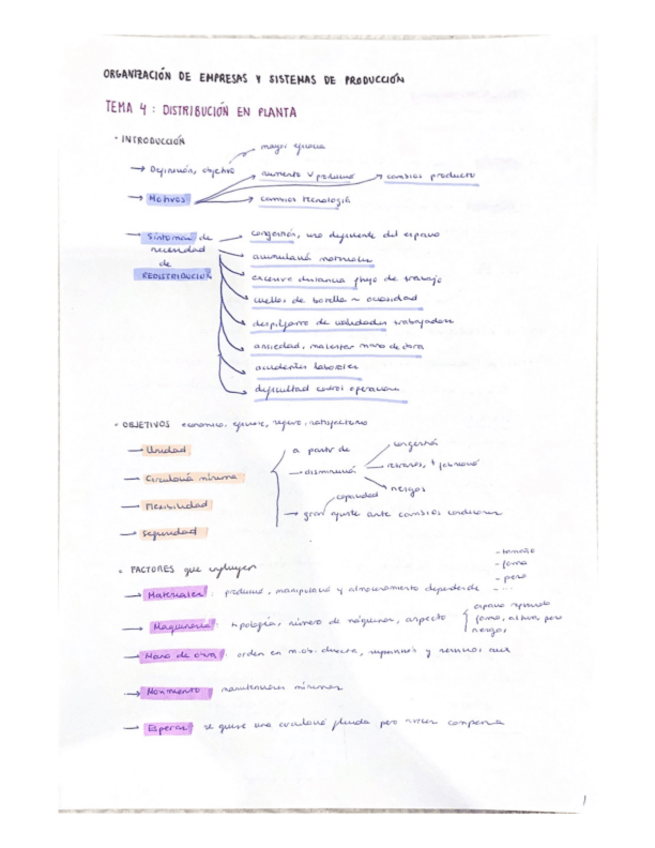 ORGANIZACIÓN DE EMPRESAS Y SISTEMAS DE PRODUCCIÓN
TEMA 4: DISTRIBUCIÓN EN PLANTA
· INTRODUCCIÓN
→ Definición, objetivo
mayor eficacia
→ Motivos
aumento V producció
cambios producto
cambios tecnología
→ Síntomas de necesidad de REDISTRIBUCIÓN
congestión, uso deficiente del espacio
acumulació materiales
excesiva distancia flujo de trabajo
cuellos de botella ~ ociosidad
despilfarro de cualidades trabajadores
ansiedad, malestar mano de obra
accidentes laborales
dificultad control operaciones
· OBJETIVOS económico, eficaz, seguro, satisfactorio
→ Unidad
→ Circulació mínima
→ Flexibilidad
→ Seguridad
a partir de
→ disminució
congestió
retrasos,
riesgos
capacidad
→ gran ajuste ante cambios condiciones
· FACTORES que influyen
- tamaño
- forma
- peso
- ...
→ Materiales: producció, manipulació y almacenamiento depende de
→ Maquinaria: tipología, número de máquinas, aspecto
espacio requerido
forma, altura, peso
riesgos
→ Mano de obra: orden en m.ob. directa, supervisió y servicios aux
→ Movimiento manutenciones mínimas
→ Esperas se quiere una circulació fluida pero a veces compensa
1